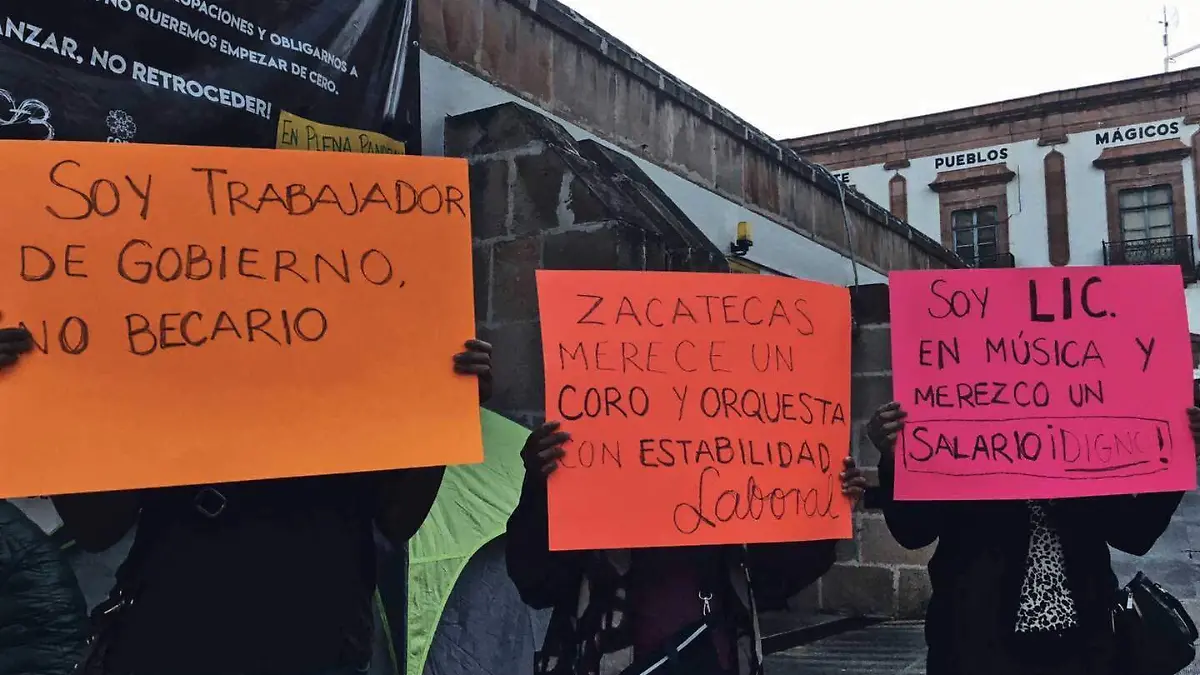 UPACIONES Y OBLIGARNOS A
NO QUEREMOS EMPEZAR DE CERO.
ANZAR, NO RETROCEDER!
EN PLENA
SOY TRABAJADOR
DE GOBIERNO,
NO BECARIO
ZACATECAS
MERECE UN
CORO Y ORQUESTA
CON ESTABILIDAD
Laboral
SOY LIC.
EN MÚSICA Y
MEREZCO UN
SALARIO ¡DIGNO!
PUEBLOS MÁGICOS